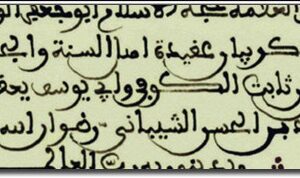 العلامة حجة الاسلام ابو جعفر
كر بيان عقيدة اهل السنة والج
بن ثابت الكوفي وابي يوسف يعقو
بن الحسن الشيباني رضوان الله
رب العالم